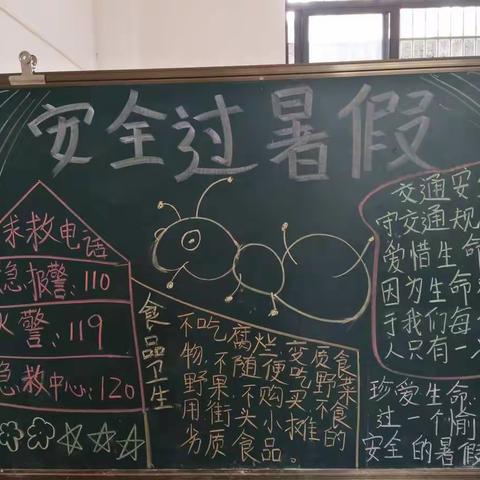 安全过暑假
求救电话
急报警:110
火警:119
急救中心:120
食品卫生
不吃腐烂变质食
物、不随便吃野菜
野果、不购买不食
用街头小摊的
劣质食品。
交通安
守交通规
爱惜生命
因为生命
于我们每
人只有一
珍爱生命
过一个愉
安全的暑假